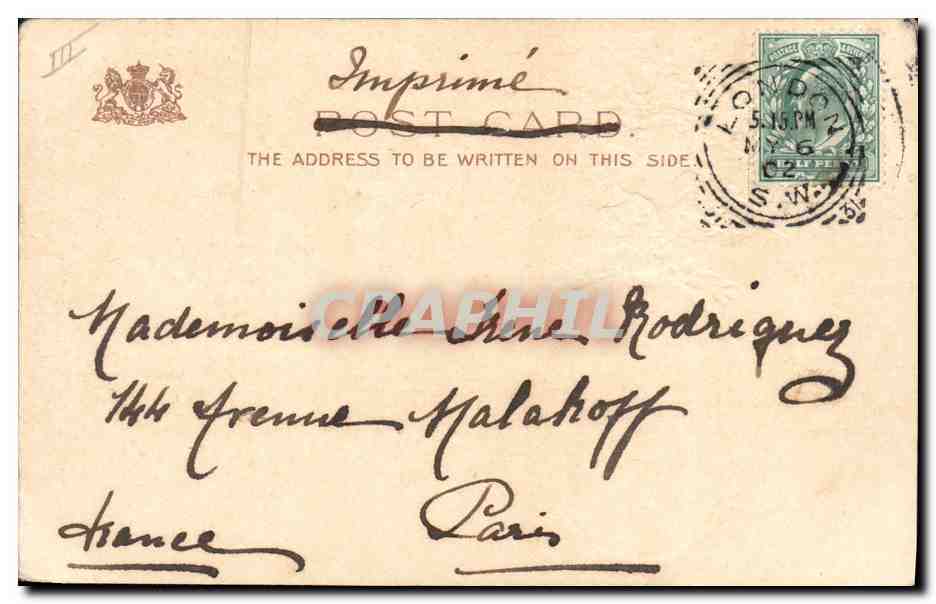 III
Imprimé
POST CARD.
THE ADDRESS TO BE WRITTEN ON THIS SIDE.
POSTAGE & REVENUE
HALF PENNY
LONDON
5.15.PM
MY 6
02
S.W.
31
CPAPHIL
Mademoiselle Irene Rodriguez
144 Avenue Malakoff
France Paris